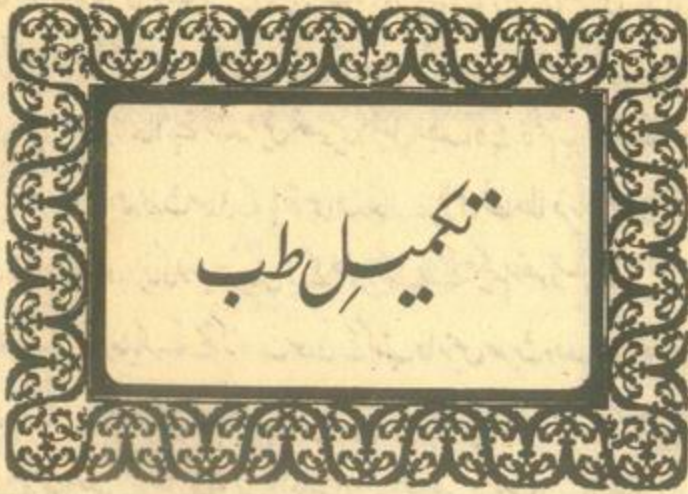 تکمیلِ طب